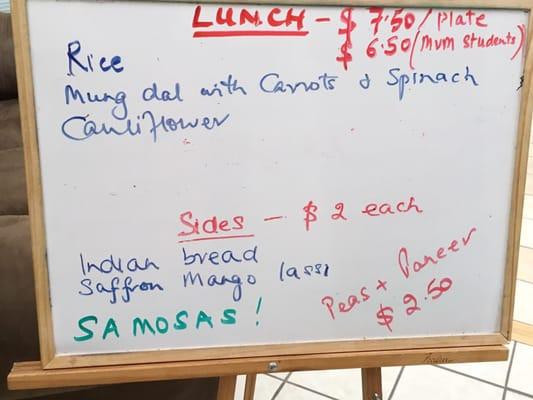 LUNCH - $ 7.50 / Plate
$ 6.50 (MVM Students)
Rice
Mung dal with Carrots & Spinach
Cauliflower
Sides - $ 2 each
Indian bread
Saffron Mango lassi
SAMOSAS!
Peas + Paneer
$ 2.50